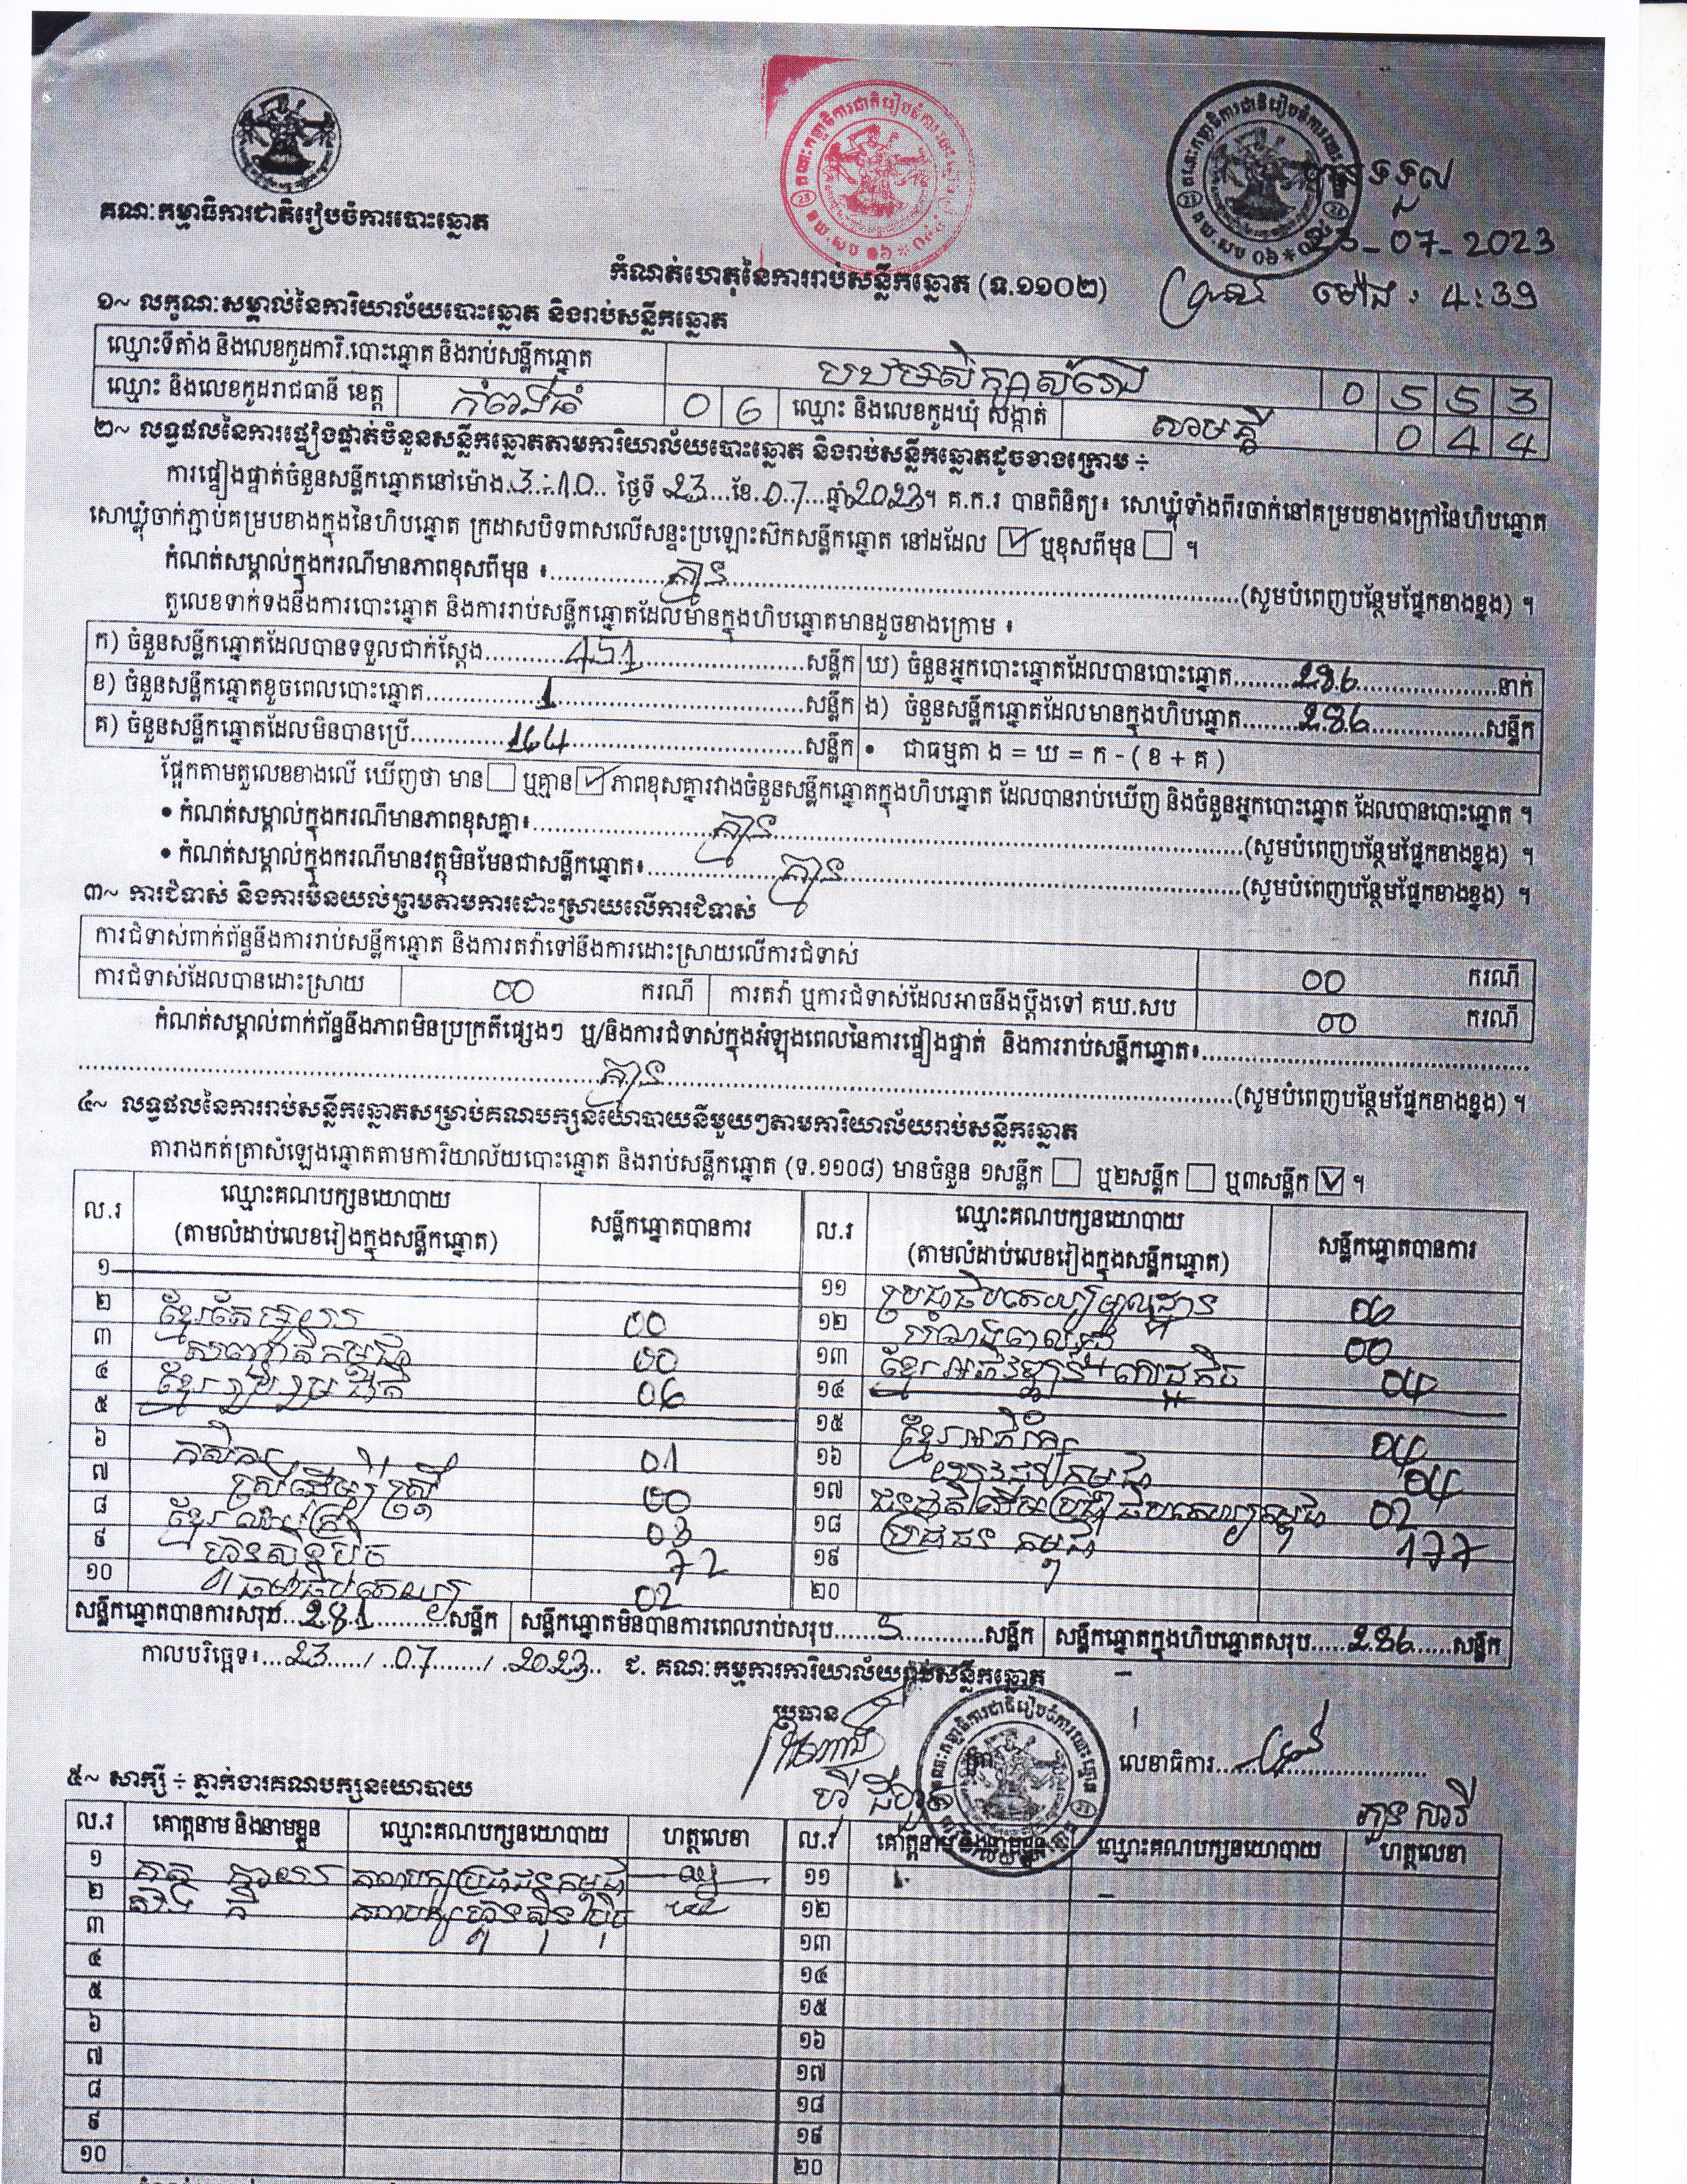 គណៈកម្មាធិការជាតិរៀបចំការបោះឆ្នោត
បានទទួល
23-07-2023
ម៉ោង 4:39
កំណត់ហេតុនៃការរាប់សន្លឹកឆ្នោត (ទ.១១០២)
១~ លក្ខណៈសម្គាល់នៃការិយាល័យបោះឆ្នោត និងរាប់សន្លឹកឆ្នោត
ឈ្មោះទីតាំង និងលេខកូដការិ.បោះឆ្នោត និងរាប់សន្លឹកឆ្នោត បឋមសិក្សា 0 5 5 3
ឈ្មោះ និងលេខកូដរាជធានី ខេត្ត កំពង់ធំ 0 6 ឈ្មោះ និងលេខកូដឃុំ សង្កាត់ សាមគ្គី 0 4 4
២~ លទ្ធផលនៃការផ្ទៀងផ្ទាត់ចំនួនសន្លឹកឆ្នោតតាមការិយាល័យបោះឆ្នោត និងរាប់សន្លឹកឆ្នោតដូចខាងក្រោម ÷
ការផ្ទៀងផ្ទាត់ចំនួនសន្លឹកឆ្នោតនៅម៉ោង 3:10 ថ្ងៃទី 23 ខែ 07 ឆ្នាំ 2023។ គ.ក.រ បានពិនិត្យ៖ សោឃ្លុំទាំងពីរចាក់នៅគម្របខាងក្រៅនៃហិបឆ្នោត
សោឃ្លុំចាក់ភ្ជាប់គម្របខាងក្នុងនៃហិបឆ្នោត ក្រដាសបិទពាសលើសន្ទះប្រឡោះស៊កសន្លឹកឆ្នោត នៅដដែល ☑ ឬខុសពីមុន ☐ ។
កំណត់សម្គាល់ក្នុងករណីមានភាពខុសពីមុន ៖ គ្មាន (សូមបំពេញបន្ថែមផ្នែកខាងខ្នង) ។
តួលេខទាក់ទងនឹងការបោះឆ្នោត និងការរាប់សន្លឹកឆ្នោតដែលមានក្នុងហិបឆ្នោតមានដូចខាងក្រោម ៖
ក) ចំនួនសន្លឹកឆ្នោតដែលបានទទួលជាក់ស្តែង 451 សន្លឹក ឃ) ចំនួនអ្នកបោះឆ្នោតដែលបានបោះឆ្នោត 286 នាក់
ខ) ចំនួនសន្លឹកឆ្នោតខូចពេលបោះឆ្នោត 1 សន្លឹក ង) ចំនួនសន្លឹកឆ្នោតដែលមានក្នុងហិបឆ្នោត 286 សន្លឹក
គ) ចំនួនសន្លឹកឆ្នោតដែលមិនបានប្រើ 164 សន្លឹក • ជាធម្មតា ង = ឃ = ក - ( ខ + គ )
ផ្អែកតាមតួលេខខាងលើ ឃើញថា មាន ☐ ឬគ្មាន ☑ ភាពខុសគ្នារវាងចំនួនសន្លឹកឆ្នោតក្នុងហិបឆ្នោត ដែលបានរាប់ឃើញ និងចំនួនអ្នកបោះឆ្នោត ដែលបានបោះឆ្នោត ។
• កំណត់សម្គាល់ក្នុងករណីមានភាពខុសគ្នា៖ គ្មាន (សូមបំពេញបន្ថែមផ្នែកខាងខ្នង) ។
• កំណត់សម្គាល់ក្នុងករណីមានវត្ថុមិនមែនជាសន្លឹកឆ្នោត៖ គ្មាន (សូមបំពេញបន្ថែមផ្នែកខាងខ្នង) ។
៣~ ការជំទាស់ និងការមិនយល់ព្រមតាមការដោះស្រាយលើការជំទាស់
ការជំទាស់ពាក់ព័ន្ធនឹងការរាប់សន្លឹកឆ្នោត និងការតវ៉ាទៅនឹងការដោះស្រាយលើការជំទាស់ 00 ករណី
ការជំទាស់ដែលបានដោះស្រាយ 00 ករណី ការតវ៉ា ឬការជំទាស់ដែលអាចនឹងប្តឹងទៅ គឃ.សប 00 ករណី
កំណត់សម្គាល់ពាក់ព័ន្ធនឹងភាពមិនប្រក្រតីផ្សេងៗ ឬ/និងការជំទាស់ក្នុងអំឡុងពេលនៃការផ្ទៀងផ្ទាត់ និងការរាប់សន្លឹកឆ្នោត៖
គ្មាន (សូមបំពេញបន្ថែមផ្នែកខាងខ្នង) ។
៤~ លទ្ធផលនៃការរាប់សន្លឹកឆ្នោតសម្រាប់គណបក្សនយោបាយនីមួយៗតាមការិយាល័យរាប់សន្លឹកឆ្នោត
តារាងកត់ត្រាសំឡេងឆ្នោតតាមការិយាល័យបោះឆ្នោត និងរាប់សន្លឹកឆ្នោត (ទ.១១០៨) មានចំនួន ១សន្លឹក ☐ ឬ២សន្លឹក ☐ ឬ៣សន្លឹក ☑ ។
ល.រ ឈ្មោះគណបក្សនយោបាយ (តាមលំដាប់លេខរៀងក្នុងសន្លឹកឆ្នោត) សន្លឹកឆ្នោតបានការ ល.រ ឈ្មោះគណបក្សនយោបាយ (តាមលំដាប់លេខរៀងក្នុងសន្លឹកឆ្នោត) សន្លឹកឆ្នោតបានការ
១ ១១ ប្រជាធិបតេយ្យមូលដ្ឋាន 00
២ 00 ១២ 00
៣ សញ្ជាតិកម្ពុជា 00 ១៣ ខ្មែរអភិវឌ្ឍន៍សេដ្ឋកិច្ច 04
៤ ខ្មែររួបរួមជាតិ 06 ១៤
៥ ១៥ ខ្មែរអភិរក្ស 04
៦ កសិករ 01 ១៦ យុវជនកម្ពុជា 04
៧ ស្ត្រីដើម្បីស្ត្រី 00 ១៧ ជនជាតិដើមប្រជាធិបតេយ្យកម្ពុជា 02
៨ ខ្មែរ 03 ១៨ ប្រជាជនកម្ពុជា 177
៩ ហ្វ៊ុនស៊ិនប៉ិច 72 ១៩
១០ ធម្មាធិបតេយ្យ 02 ២០
សន្លឹកឆ្នោតបានការសរុប 281 សន្លឹក សន្លឹកឆ្នោតមិនបានការពេលរាប់សរុប 5 សន្លឹក សន្លឹកឆ្នោតក្នុងហិបឆ្នោតសរុប 286 សន្លឹក
កាលបរិច្ឆេទ៖ 23 / 07 / 2023 ជ. គណៈកម្មការការិយាល័យរាប់សន្លឹកឆ្នោត
ប្រធាន
លេខាធិការ
៥~ សាក្សី ÷ ភ្នាក់ងារគណបក្សនយោបាយ
ល.រ គោត្តនាម និងនាមខ្លួន ឈ្មោះគណបក្សនយោបាយ ហត្ថលេខា ល.រ គោត្តនាម និងនាមខ្លួន ឈ្មោះគណបក្សនយោបាយ ហត្ថលេខា
១ គណបក្សប្រជាជនកម្ពុជា ១១
២ គណបក្សហ្វ៊ុនស៊ិនប៉ិច ១២
៣ ១៣
៤ ១៤
៥ ១៥
៦ ១៦
៧ ១៧
៨ ១៨
៩ ១៩
១០ ២០